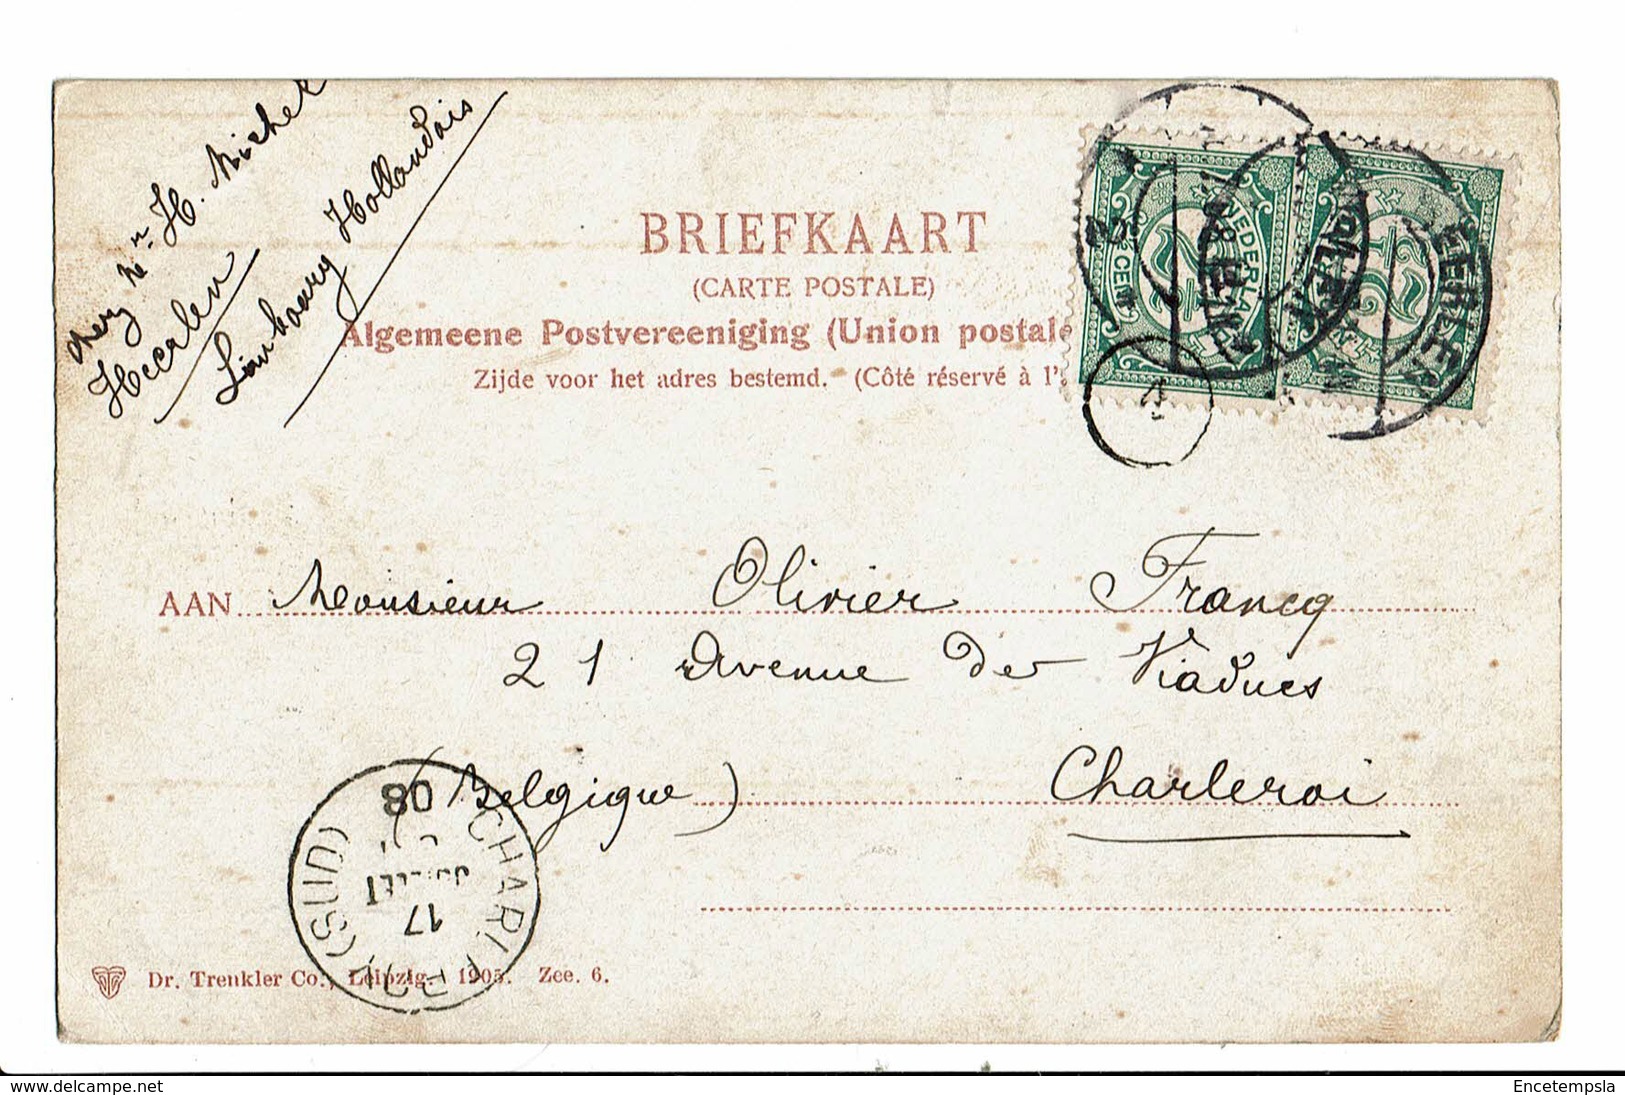 chez Mr H. Michel
Heerlen
Limbourg Hollandais
BRIEFKAART
(CARTE POSTALE)
Algemeene Postvereeniging (Union postale
Zijde voor het adres bestemd. (Côté réservé à l'
NEDERLAND
CENT
HEERLEN
AAN Monsieur Olivier Francq
21 Avenue des Viaducs
(Belgique) Charleroi
CHARLEROI (SUD)
17
JUILLET
08
Dr. Trenkler Co., Leipzig. 1905. Zee. 6.
delcampe.net
Encetempsla